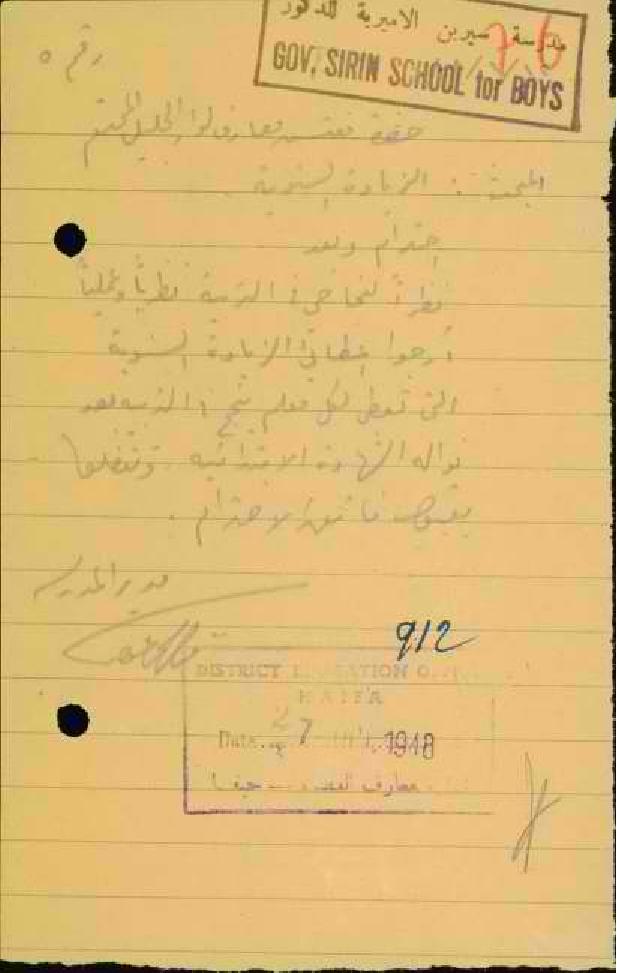 مدرسة سيرين الاميرية للذكور
76
GOV, SIRIN SCHOOL for BOYS
رقم ٥
حضرة مفتش معارف لواء الجليل المحترم
المبحث : الزيادة السنوية
احترام وبعد
نظراً لنجاحي في التربية نظرياً وعملياً
أرجوا إعطائي الزيادة السنوية
التي تعطى لكل معلم نجح في التربية بعد
نواله الشهادة الابتدائية . وتفضلوا
بقبول فائق الاحترام .
مدير المدرسة
912
DISTRICT EDUCATION
HAIFA
Date 27 1948
معارف حيفا